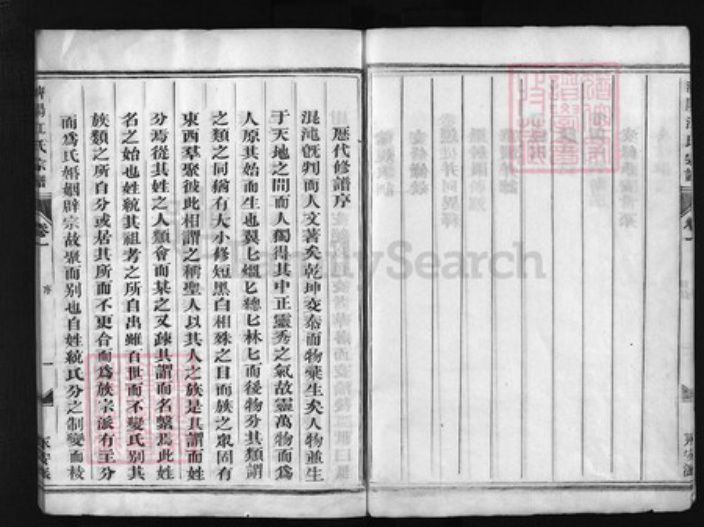 歷代修譜序
混沌旣判而人文著矣乾坤交泰而物彙生矣人物並生
于天地之間而人獨得其中正靈秀之氣故靈萬物而爲
人原其始而生也翼匕繩匕總匕林匕而後物分其類謂
之類之同猶有大小修短黑白相殊之目而族之衆固有
東西羣聚彼此相謂之稱聖人以其人之族是其謂而姓
分焉從其姓之人類會而某之又疎其謂而名繫焉此姓
名之始也姓統其祖考之所自出雖百世而不變氏別其
族類之所自分或居其所而不更合而爲族宗派有主分
而爲氏婚姻辟宗故聚而別也自姓統氏分之制變而枝
濟陽江氏宗譜
卷一
序
一
濟陽江氏宗譜
卷一
FamilySearch